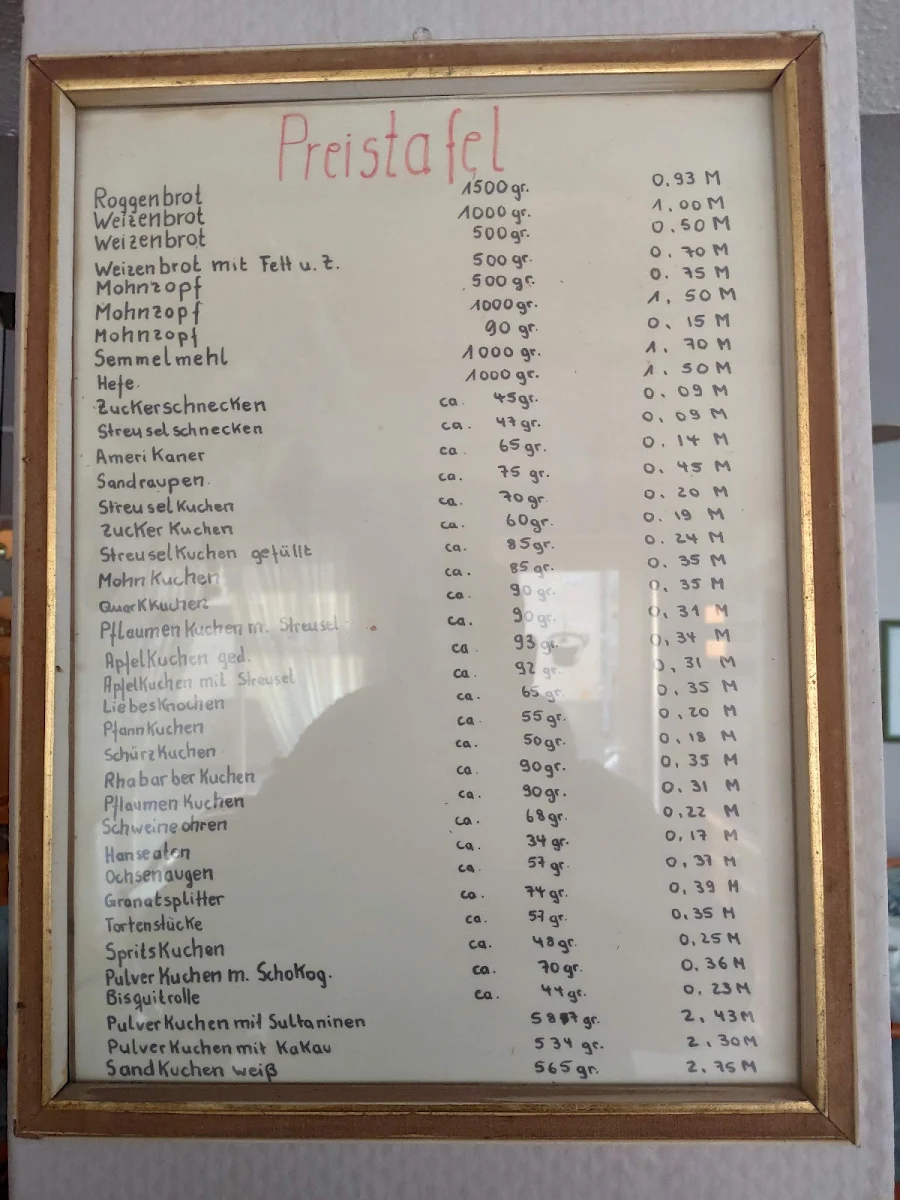 Preistafel
Roggenbrot 1500 gr. 0.93 M
Weizenbrot 1000 gr. 1.00 M
Weizenbrot 500 gr. 0.50 M
Weizenbrot mit Fett u. Z. 500 gr. 0.70 M
Mohnzopf 500 gr. 0.75 M
Mohnzopf 1000 gr. 1.50 M
Mohnzopf 90 gr. 0.15 M
Semmelmehl 1000 gr. 1.70 M
Hefe. 1000 gr. 1.50 M
Zuckerschnecken ca. 45 gr. 0.09 M
Streuselschnecken ca. 47 gr. 0.09 M
Ameri Kaner ca. 65 gr. 0.14 M
Sandraupen. ca. 75 gr. 0.45 M
Streusel Kuchen ca. 70 gr 0.20 M
Zucker Kuchen ca. 60 gr. 0.19 M
Streusel Kuchen gefüllt ca. 85 gr. 0.24 M
Mohn Kuchen ca. 85 gr. 0.35 M
QuarkKuchen ca. 90 gr. 0.35 M
Pflaumen Kuchen m. Streusel ca. 90 gr. 0.31 M
Apfel Kuchen ged. ca. 93 gr. 0.34 M
ApfelKuchen mit Streusel ca. 92 gr. 0.31 M
LiebesKnochen ca. 65 gr. 0.35 M
Pfann Kuchen ca. 55 gr. 0.20 M
Schürz Kuchen ca. 50 gr. 0.18 M
Rhabarber Kuchen ca. 90 gr. 0.35 M
Pflaumen Kuchen ca. 90 gr. 0.31 M
Schweineohren ca. 68 gr. 0.22 M
Hanseaten ca. 34 gr. 0.17 M
Ochsenaugen ca. 57 gr. 0.37 M
Granatsplitter ca. 74 gr. 0.39 M
Tortenstücke ca. 57 gr. 0.35 M
Sprits Kuchen ca. 48 gr. 0.25 M
Pulver Kuchen m. Schokog. ca. 70 gr. 0.36 M
Bisquitrolle ca. 44 gr. 0.23 M
Pulver Kuchen mit Sultaninen gr. 2.43 M
Pulver Kuchen mit KaKau 534 gr. 2.30 M
Sand Kuchen weiß 565 gr. 2.75 M